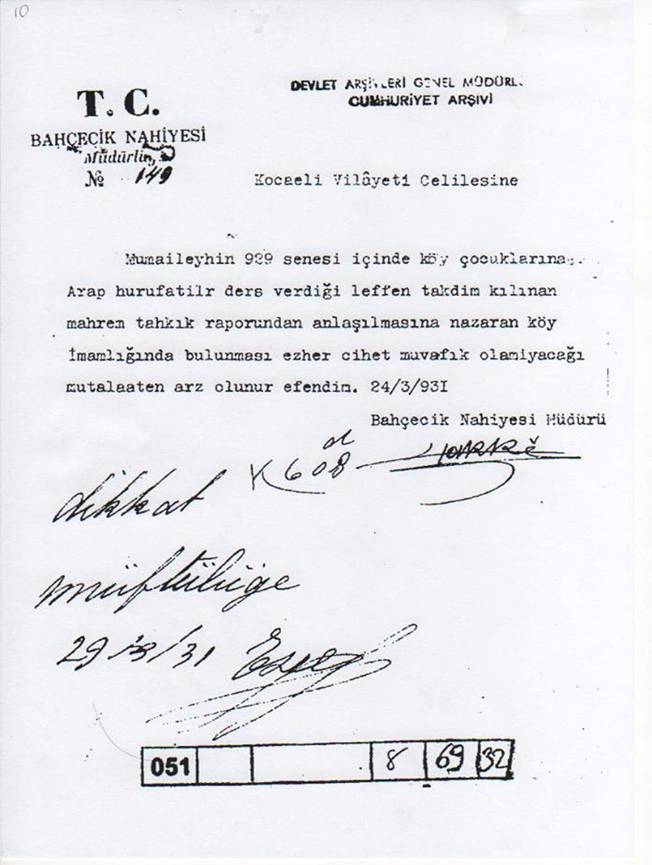 10
DEVLET ARŞİVLERİ GENEL MÜDÜRL
CUMHURİYET ARŞİVİ
T. C.
BAHÇECİK NAHİYESİ
Müdürlüğ
№ 149
Kocaeli Vilâyeti Celilesine
Mumaileyhin 929 senesi içinde köy çocuklarına
Arap hurufatilr ders verdiği leffen takdim kılınan
mahrem tahkik raporundan anlaşılmasına nazaran köy
İmamlığında bulunması ezher cihet muvafık olamiyacağı
mutalaaten arz olunur efendim. 24/3/93I
Bahçecik Nahiyesi Müdürü
K 608
dikkat
müftülüğe
29/3/31
051 8 69 32